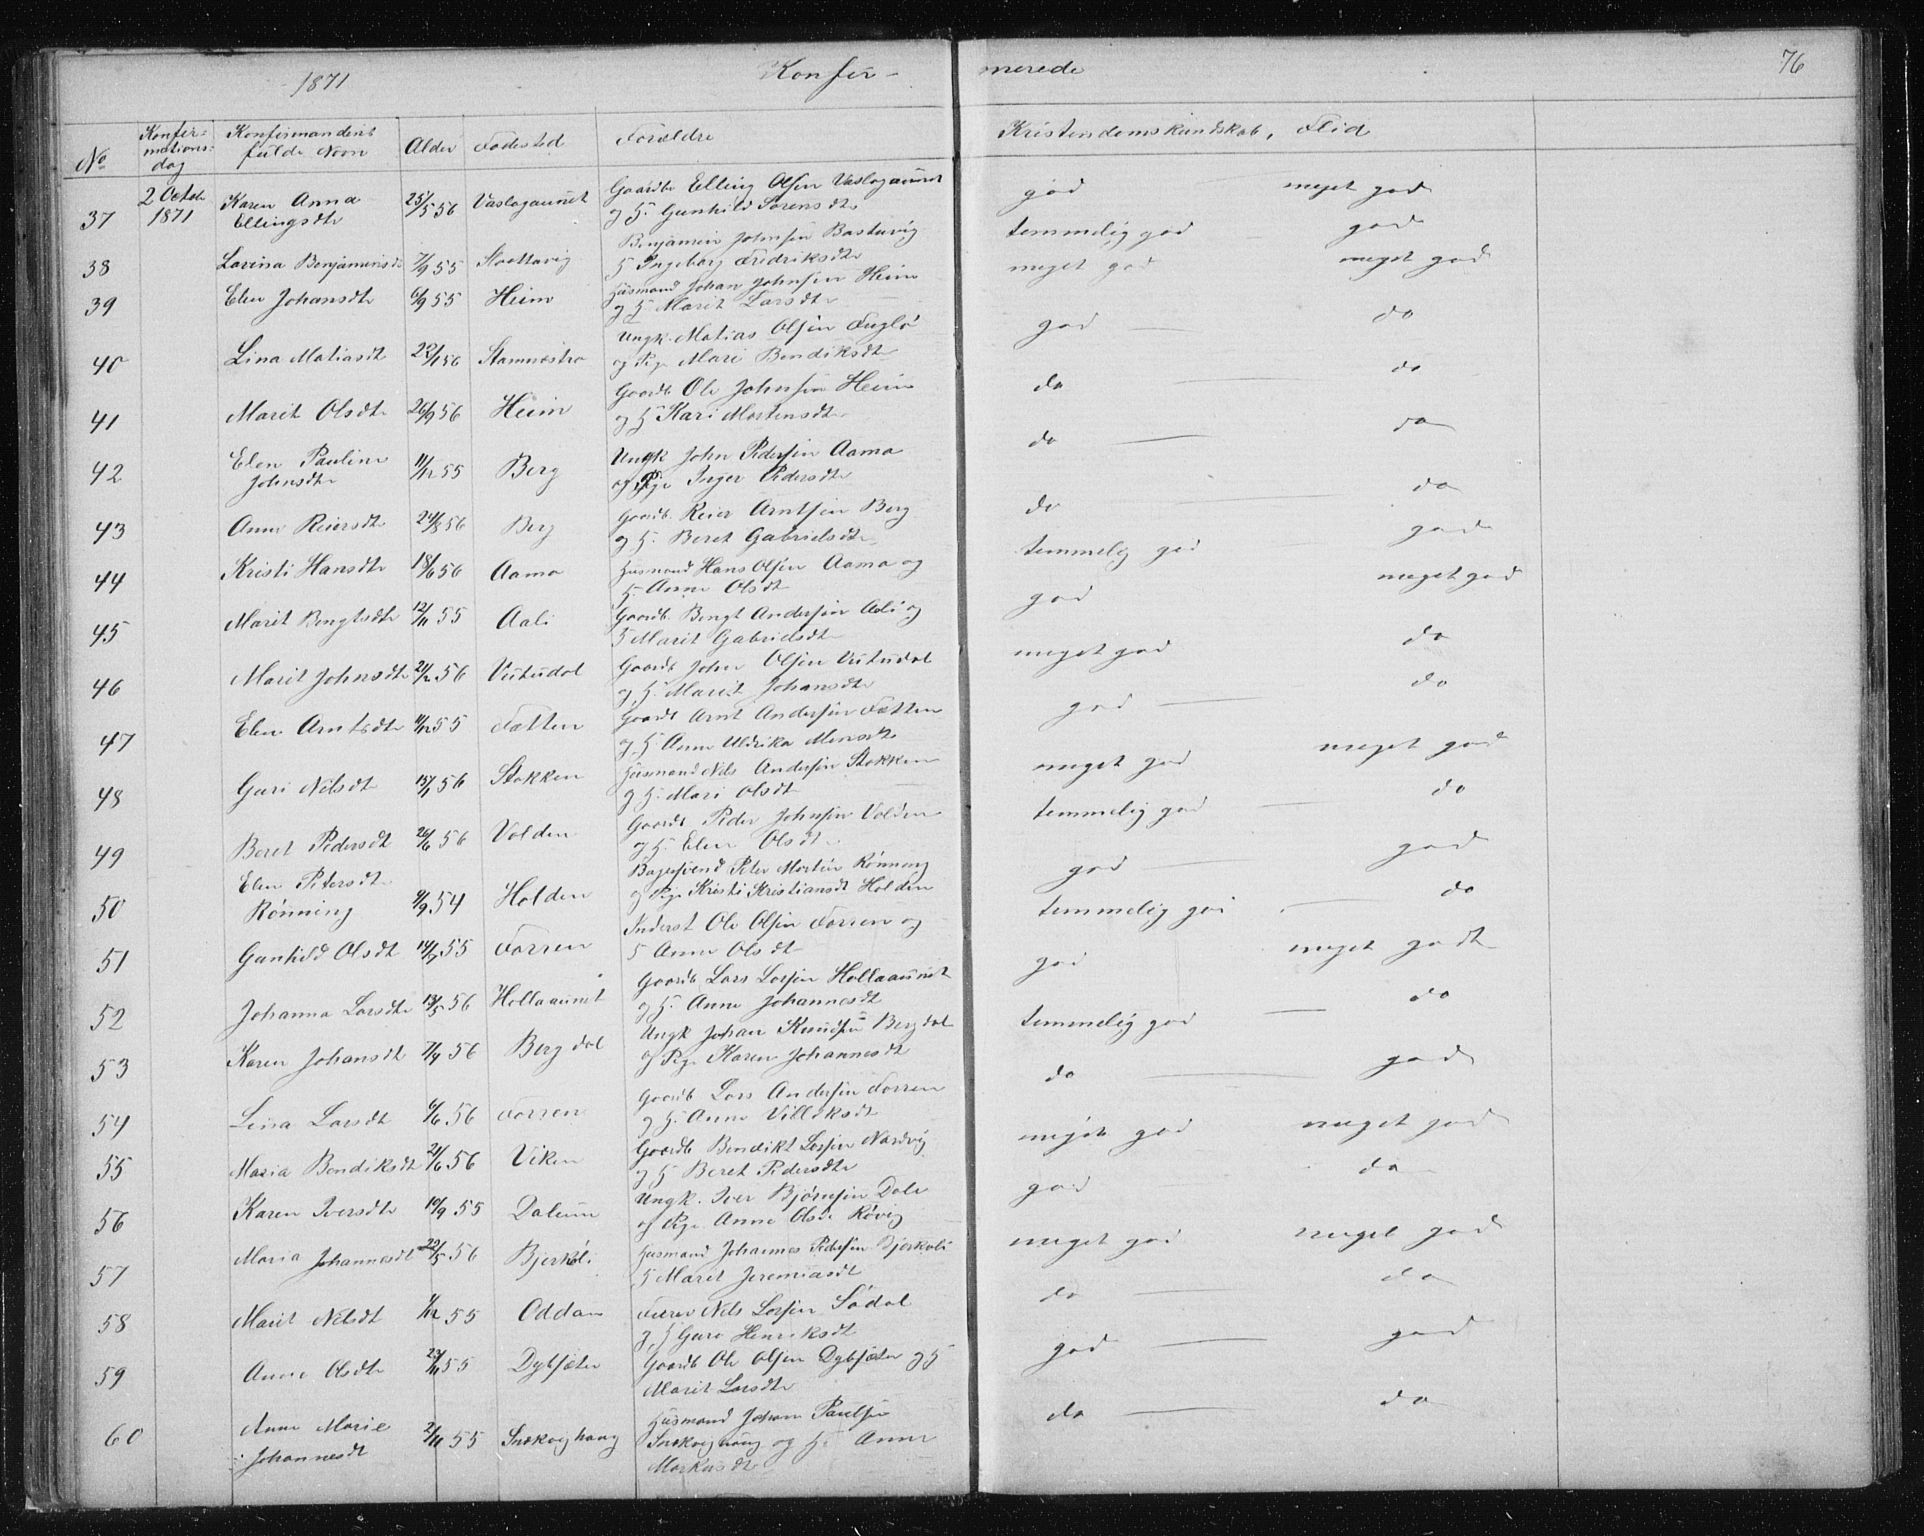 1871 Konfir- merede 76
No Konfir- mations- dag Konfirmandens fulde Navn Alder Fødested Forældre Kristendomskundskab, Flid
37 2 Octobr 1871 Karen Anna Ellingsdtr 25/5 56 Vaslagaunet Gaardb Elling Olsen Vaslagaunet og H. Gunhild Sorensdtr god meget god
38 Lavina Benjaminsdt 7/9 55 Benjamin Johnsen Bastuvig H Ingeborg Fredriksdtr temmelig god god
39 Elen Johansdtr 6/9 55 Heim Husmand Johan Johnsen Heim og H. Marit Larsdtr meget god meget god
40 Lina Matiasdt 22/1 56 Stamnestrø Ungk. Matias Olsen Fuglø og Pige Mari Bendiksdtr god do
41 Marit Olsdtr 26/9 56 Heim Gaardb Ole Johnsen Heim og H Kari Mortensdtr do do
42 Elen Pauline Johnsdtr 11/12 55 Berg Ungk John Pedersen Aamo og Pige Inger Pedersdtr do do
43 Anne Reiersdtr 24/3 56 Berg Gaardb. Reier Arntsen Berg og H. Beret Gabrielsdtr do do
44 Kristi Hansdtr 18/6 56 Aamo Husmand Hans Olsen Aamo og H. Anne Olsdt temmelig god god
45 Marit Bengtsdtr 12/11 55 Aali Gaardb. Bengt Andersen Aali og H Marit Gabrielsdtr god meget god
46 Marit Johnsdtr 21/2 56 Vutudal Gaardb John Olsen Vutudal og H. Marit Johansdtr meget god do
47 Elen Arntsdtr 11/12 55 Fætten Gaardb Arnt Andersen Fætten og H. Anne Uldrika god do
48 Guri Nilsdt 13/1 56 Stokken Husmand Nils Andersen Stokken og H. Mari Olsdt meget god meget god
49 Beret Pedersdt 26/6 56 Volden Gaardb Peder Johnsen Volden og H. Elen Olsdt temmelig god do
50 Elen Petersdt Rønning 9/9 54 Holden Peter Mortin Rønning og Pige Kristi Kristiansdt Holden god god
51 Gunhild Olsdt 14/7 55 Forren Inderst Ole Olsen Forren og H Anne Olsdt temmelig god do
52 Johanna Larsdtr 13/5 56 Hollaaunet Gaardb Lars Larsen Hollaaunet og H. Anne Johannesdt god meget godt
53 Karen Johansdt 7/4 56 Bergdal Ungk Johan Knudsen Bergdal og Pige Karen Johannesdt temmelig god do
54 Lina Larsdt 6/6 56 Forren Gaardb Lars Andersen Forren og H. Anne do god
55 Maria Bendiksdt 21/6 56 Viken Gaardb Bendikt Larsen Nordvig og H Beret Pedersdtr meget god meget god
56 Karen Iversdtr 19/9 55 Daleum Ungk. Iver Bjørnsen Dale og Pige Anne Olsdt Røvig god do
57 Maria Johannesdt 22/5 56 Bjerkeli Husmand Johannes Pedersen Bjerkeli H Marit Jeremiasdt meget god meget god
58 Marit Nilsdt 1/12 55 Oddan Nils Larsen Sødal og H Guro Henriksdt do do
59 Anne Olsdtr 29/11 55 Dybsæter Gaardb Ole Olsen Dybsæter og H Marit Larsdtr god god
60 Anne Marie Johannesdt 2/11 55 Snekvighaug Husmand Johan Paulsen Snekvighaug og H. Anne Markusdtr do do